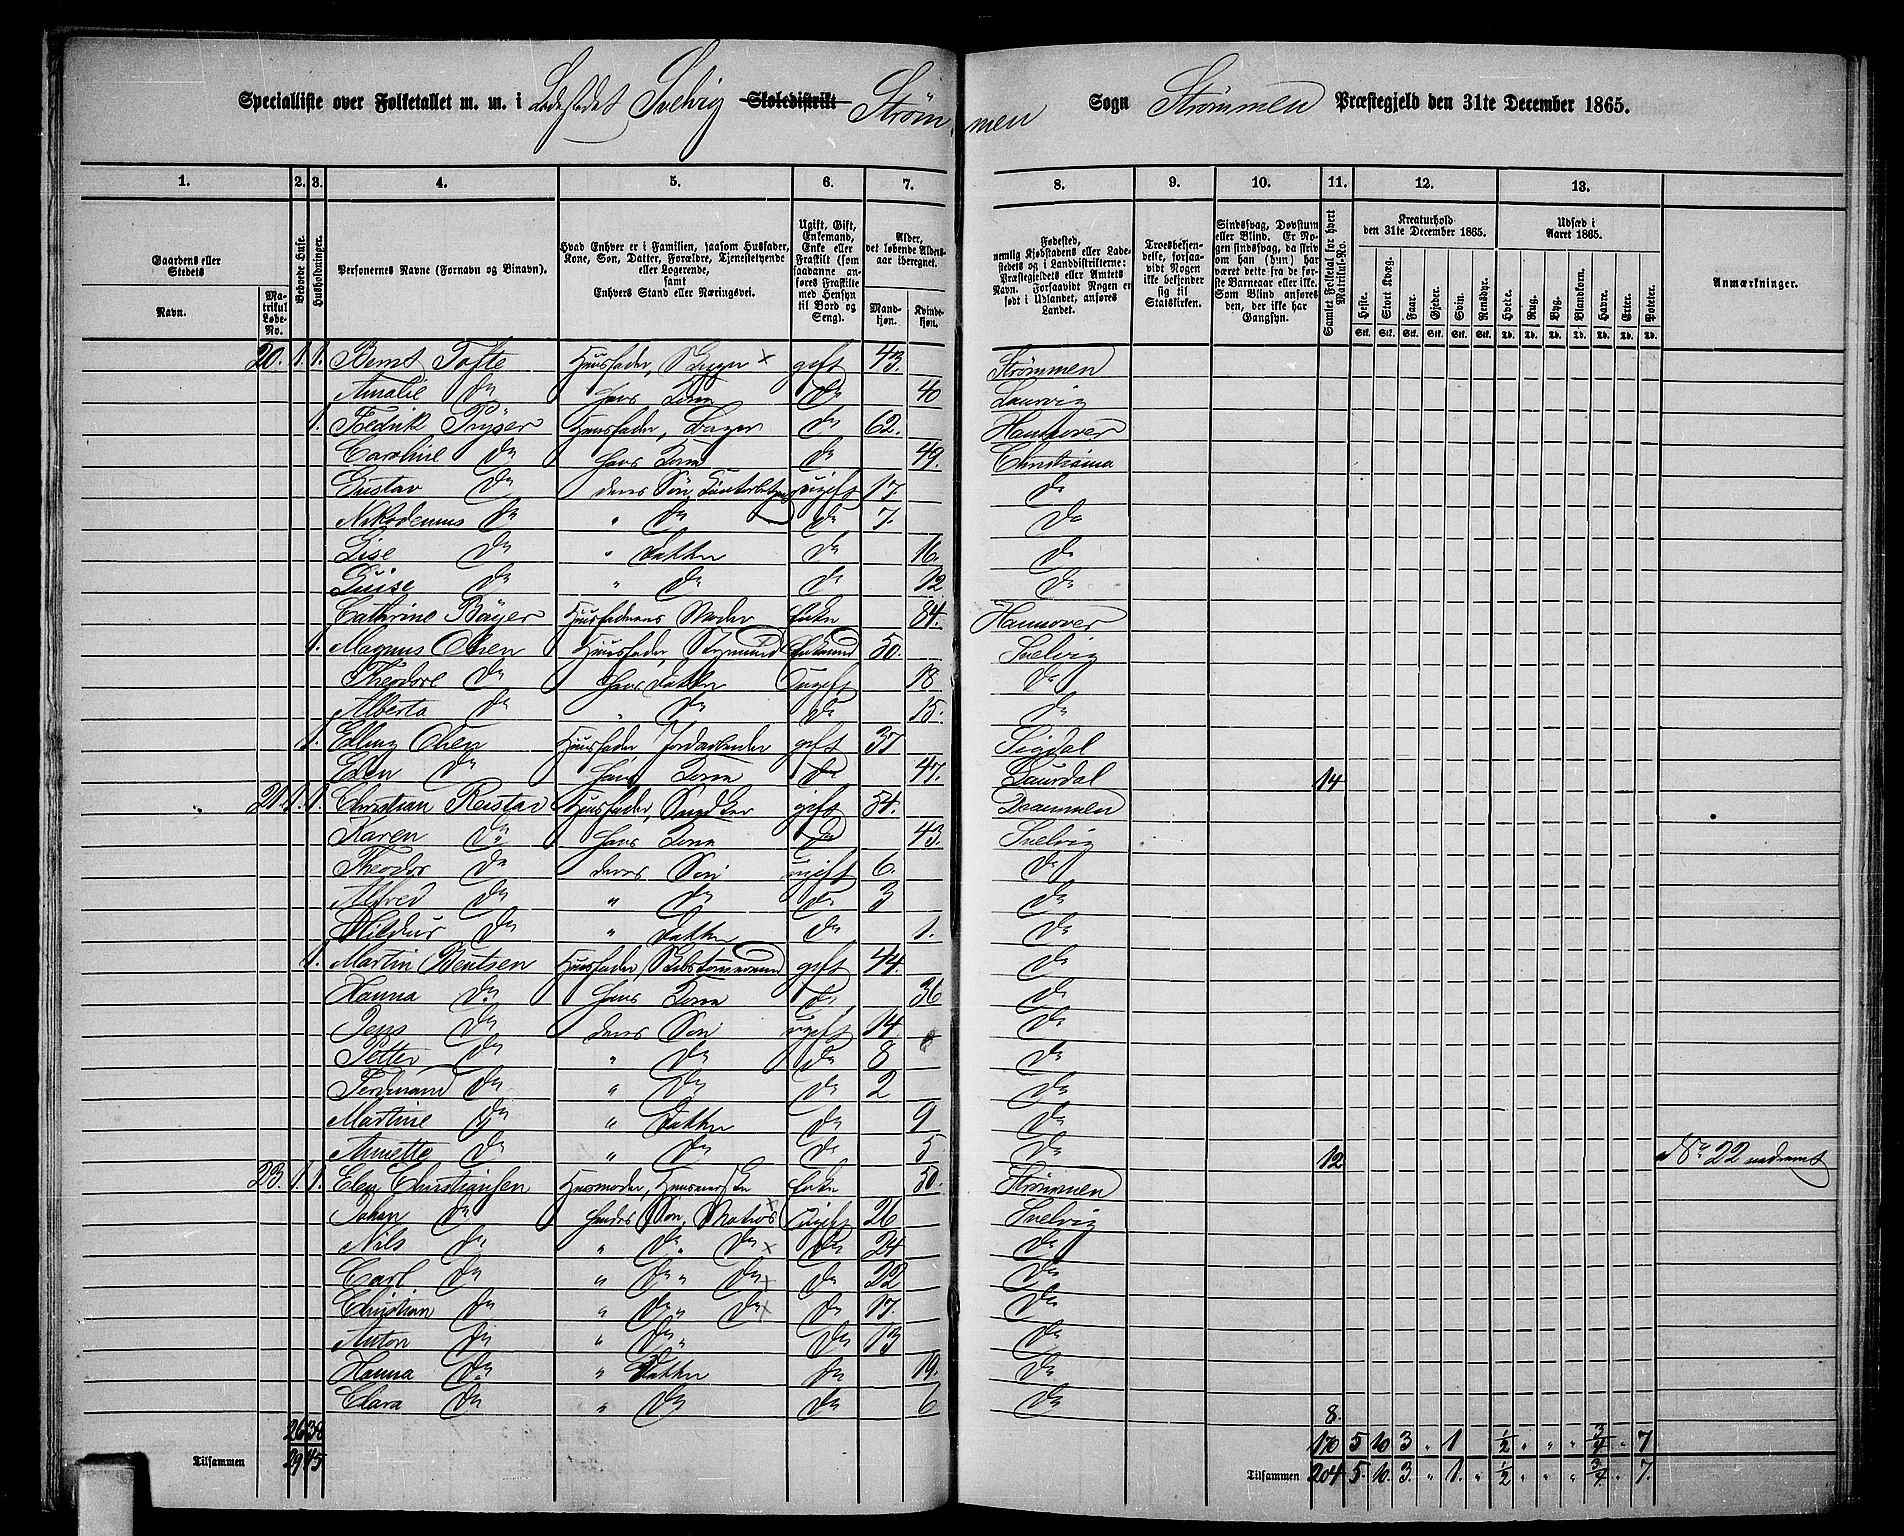 Specialliste over Folketallet m. m. i Ladestedet Svelvig Skoledistrikt Strömmen Sogn Strømmen Præstegjeld den 31te December 1865.
1. 2. 3. 4. 5. 6. 7. 8. 9. 10. 11. 12. 13.
Gaardens eller Stedets
Navn.
Matrikul Løbe-No.
Beboede Huse.
Husholdninger.
Personernes Navne (Fornavn og Binavn).
Hvad Enhver er i Familien, saasom Husfader, Kone, Søn, Datter, Forældre, Tjenestetyende eller Logerende, samt Enhvers Stand eller Næringsvei.
Ugift, Gift, Enkemand, Enke eller Fraskilt (som saadanne anføres Fraskilte med Hensyn til Bord og Seng).
Alder, det løbende Alders-aar iberegnet.
Mandkjøn. Kvindekjøn.
Fødested, nemlig Kjøbstadens eller Ladestedets og i Landdistrikterne: Præstegjeldets eller Amtets Navn. Forsaavidt Nogen er født i Udlandet, anføres Landet.
Troesbekjendelse, forsaavidt Nogen ikke bekjender sig til Statskirken.
Sindssvag, Døvstum eller Blind. Er Nogen sindssvag, da skrives om han (hun) har været dette fra de første Barneaar eller ikke. Som Blind anføres den, der ikke har Gangsyn.
Samlet Folketal for hvert Matrikul-No.
Kreaturhold den 31te December 1865.
Heste. Stort Kvæg. Faar. Gjeder. Svin. Rensdyr.
Udsæd i Aaret 1865.
Hvede. Rug. Byg. Blandkorn. Havre. Erter. Poteter.
Stk. Stk. Stk. Stk. Stk. Stk. Td. Td. Td. Td. Td. Td. Td.
Anmærkninger.
20. 1. 1. Bernt Tofte Huusfader, x gift 43. Strømmen
Amalie do hans Kone do 40 Laurvig
1. Fredrik Huusfader, Bager do 62. Hannover
Caroline do hans Kone do 49. Christiania
Gustav do deres Søn, ugift 17. do
Nikodemus do " do do 7. do
Lise do " Datter do 16. do
Luise do " do do 12 do
Cathrine Böyer Huusfaderens Moder Enke 84. Hannover
1. Magnus Olsen Huusfader, Styrmand Enkemand 50. Svelvig
Theodore do hans Datter Ugift 18. do
Alberta do " do do 15. do
1. Elling Olsen Huusfader Jordarbeider gift 37 Sigdal
Elen do hans Kone do 47. Laurdal 14
21. 1. 1. Christian Reistad Huusfader, Snedker gift 54. Drammen
Karen do hans Kone do 43. Svelvig
Theodor do deres Søn ugift 6. do
Alfred do " do do 3 do
Hildur do " Datter do 1. do
1. Martin Bentsen Huusfader, Skibstømmermand gift 44. do
Hanna do hans Kone do 36 do
Jens do deres Søn ugift 14 do
Petter do " do do 8 do
Ferdinand do " do do 2 do
Martine do " Datter do 9 do
Annette do " do do 5 do 12 No 22 nedramt
23. 1. 1. Elen Christiansen Husmoder, Enke 50. Strømmen
Johan do hendes Søn, Matros x Ugift 26 Svelvig
Nils do " do " do x do 24 do
Carl do " do " do x do 22 do
Christian do " do " do x do 17. do
Anton do " do " do 13 do
Hanna do " Datter do 19. do
Clara do " do do 6 do
8.
26 38 170 5 10 3 " 1 1/2 " " " 3/4 " 7
Tilsammen 29 45 Tilsammen 204 5. 10. 3. " 1. " 1/2 " " " 3/4 " 7.